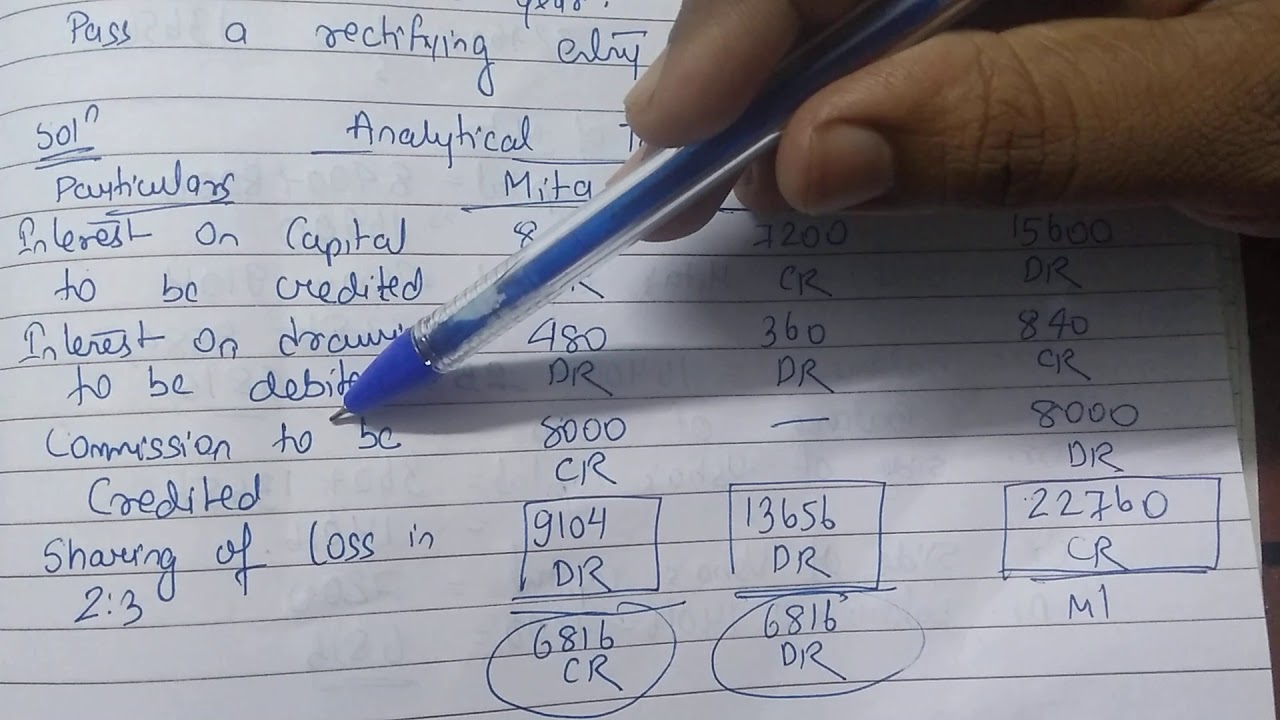 Pass a rectifying entry
Solⁿ Analytical
Particulars Mita
Interest on Capital 7200 15600
to be credited CR DR
Interest on 480 360 840
to be DR DR CR
Commission to be 8000 — 8000
Credited CR DR
Sharing of loss in 9104 13656 22760
2:3 DR DR CR
6816 6816 M1
CR DR